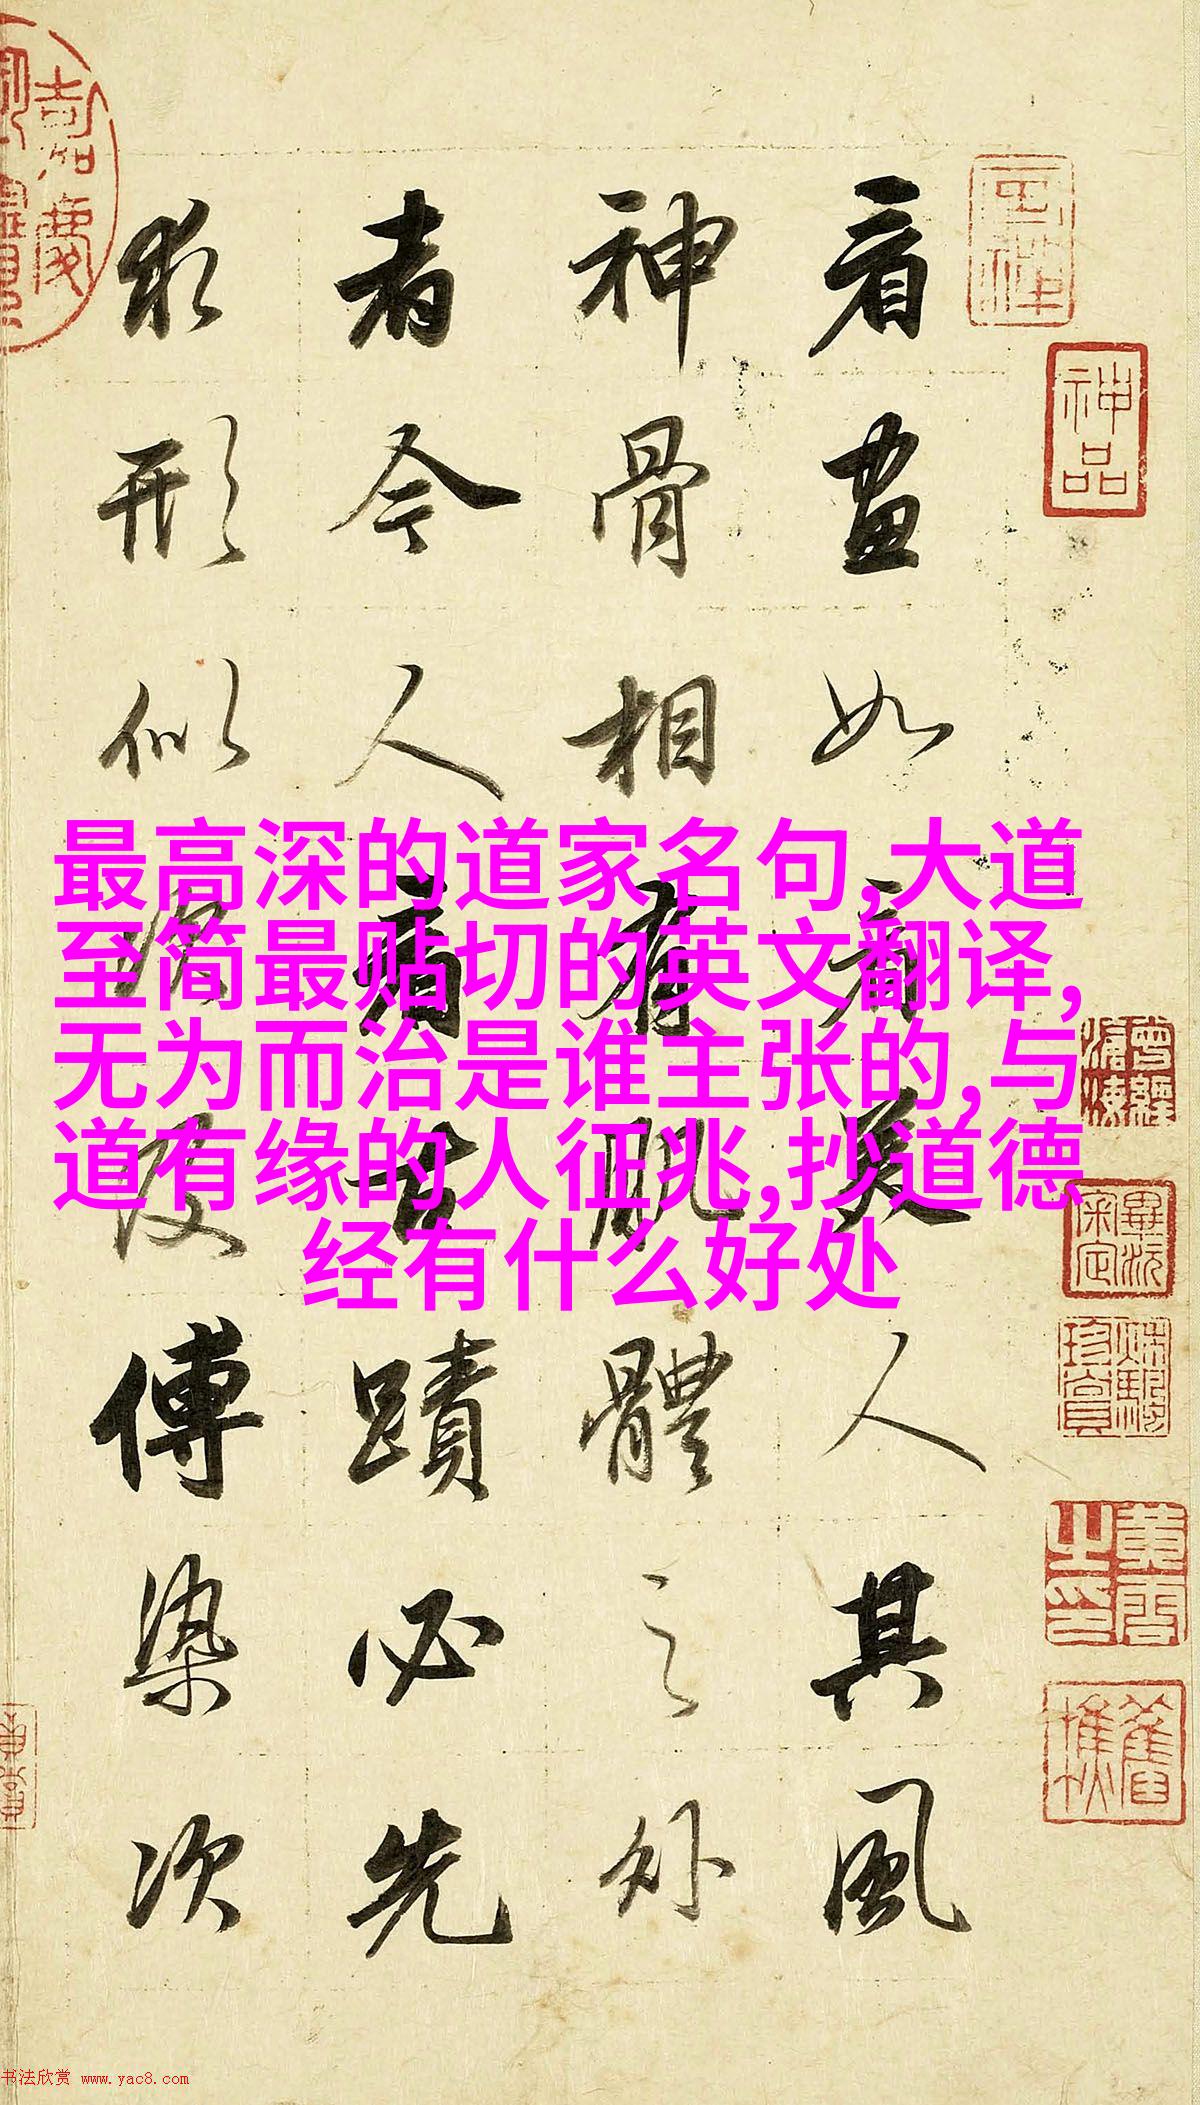 最高深的道家名句,大道
至简最贴切的英文翻译,
无为而治是谁主张的,与
道有缘的人征兆,抄道德
经有什么好处
看畫如看美人其風
神骨相有肌體之外
者今人看古蹟必先
求形似次及傅染次
神品
书法欣赏 www.yac8.com